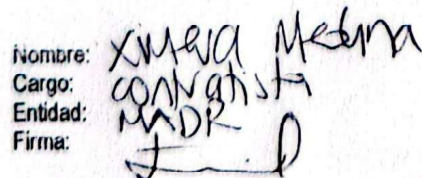 Nombre: Ximena Medina
Cargo: contratista
Entidad: MADR
Firma: